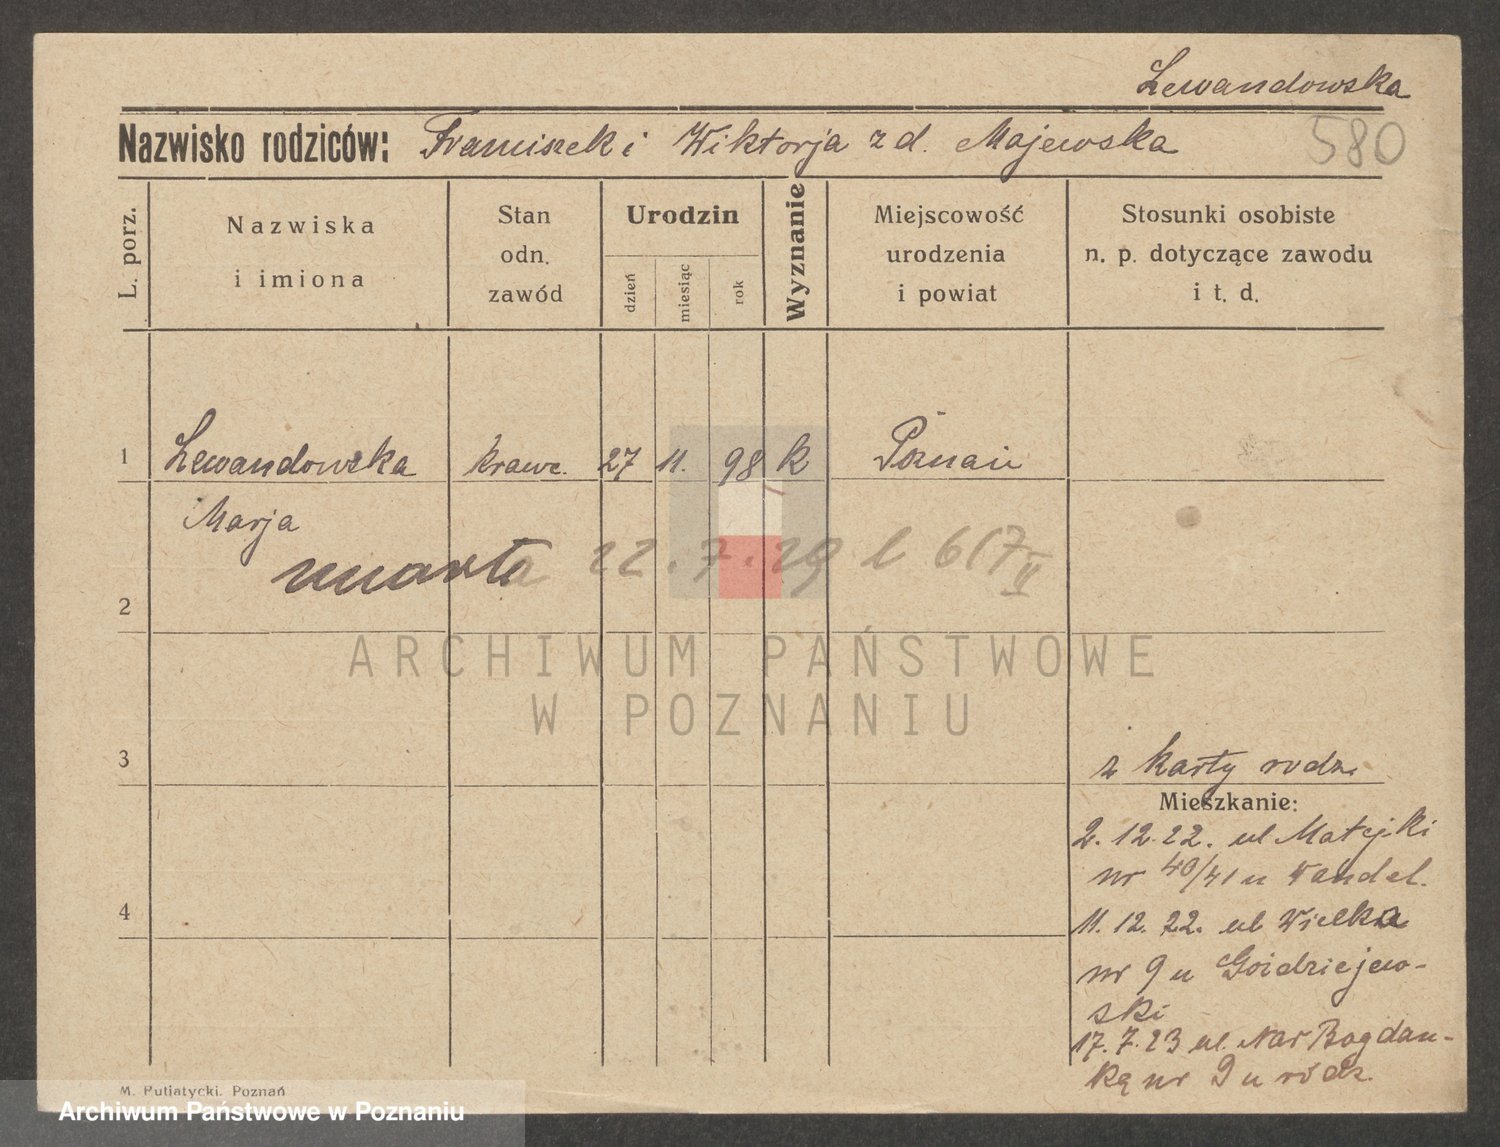 Lewandowska
Nazwisko rodziców: Franciszek i Wiktorja z d. Majewska
580
L. porz.
Nazwiska
i imiona
Stan
odn.
zawód
Urodzin
dzień
miesiąc
rok
Wyznanie
Miejscowość
urodzenia
i powiat
Stosunki osobiste
n. p. dotyczące zawodu
i t. d.
1 Lewandowska krawc. 27 11. 98 k Poznań
Marja
umarła 22.7.29 l 617 II
2
ARCHIWUM PAŃSTWOWE
W POZNANIU
3
z karty rodz.
Mieszkanie:
2. 12. 22. ul Matejki
nr 40/41 u Wandel.
4
11. 12. 22. ul Wielka
nr 9 u Goidziejew-
ski
17. 7. 23 ul. Nar Bogdan-
ką nr 9 u rodz.
M. Putiatycki. Poznań
Archiwum Państwowe w Poznaniu